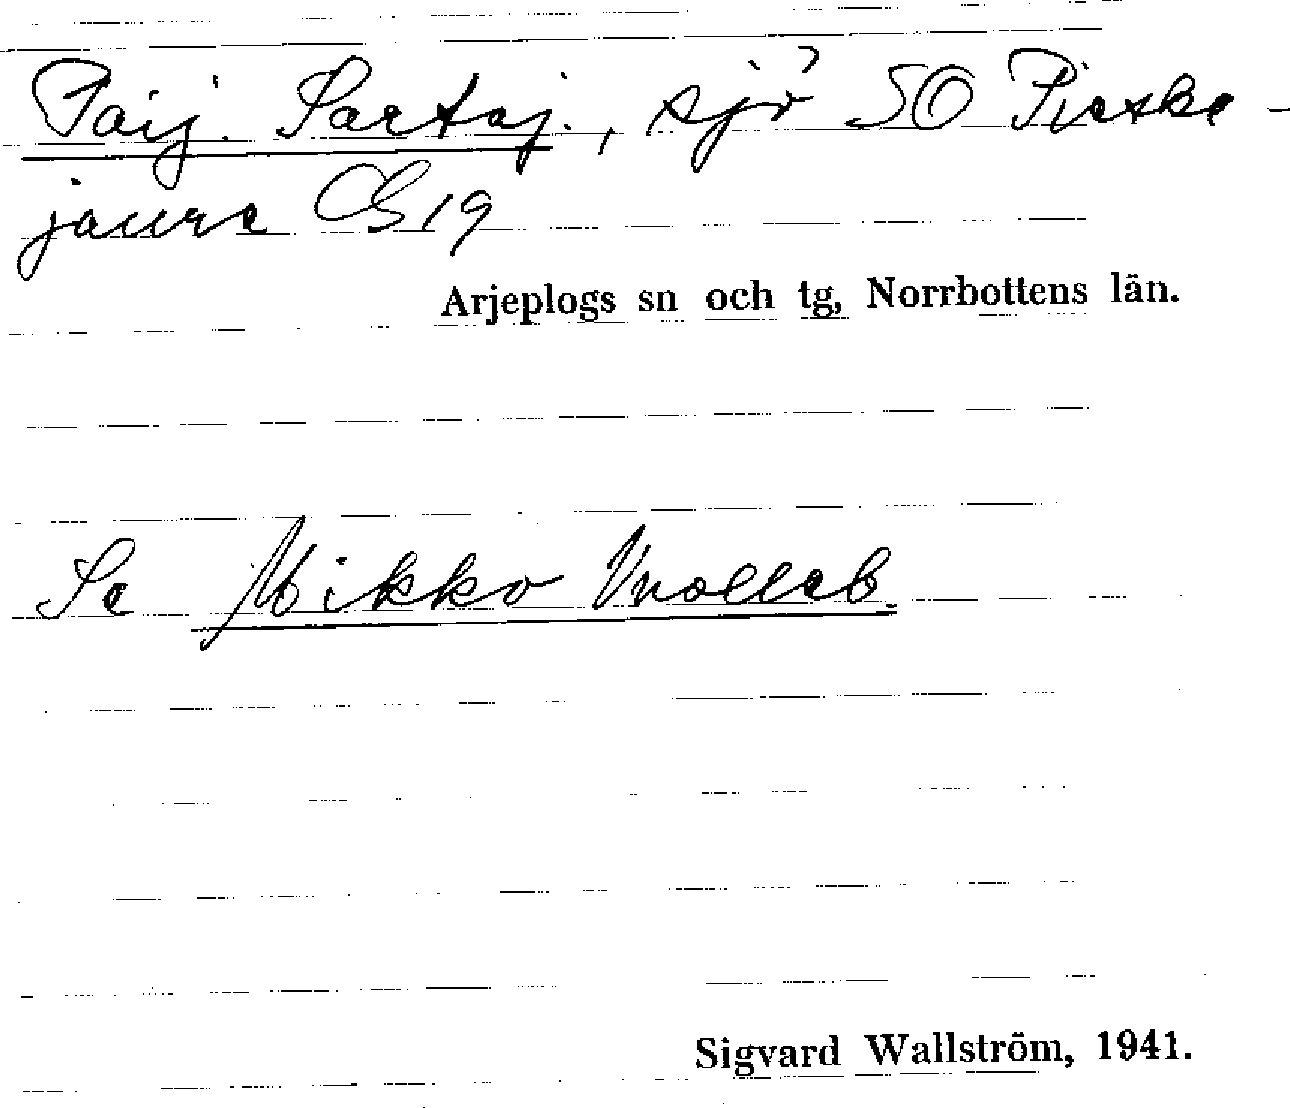 Paij. Sartaj., sjö SO Pieske-
jaure CG 19
Arjeplogs sn och tg, Norrbottens län.
Se Mikko
Sigvard Wallström, 1941.